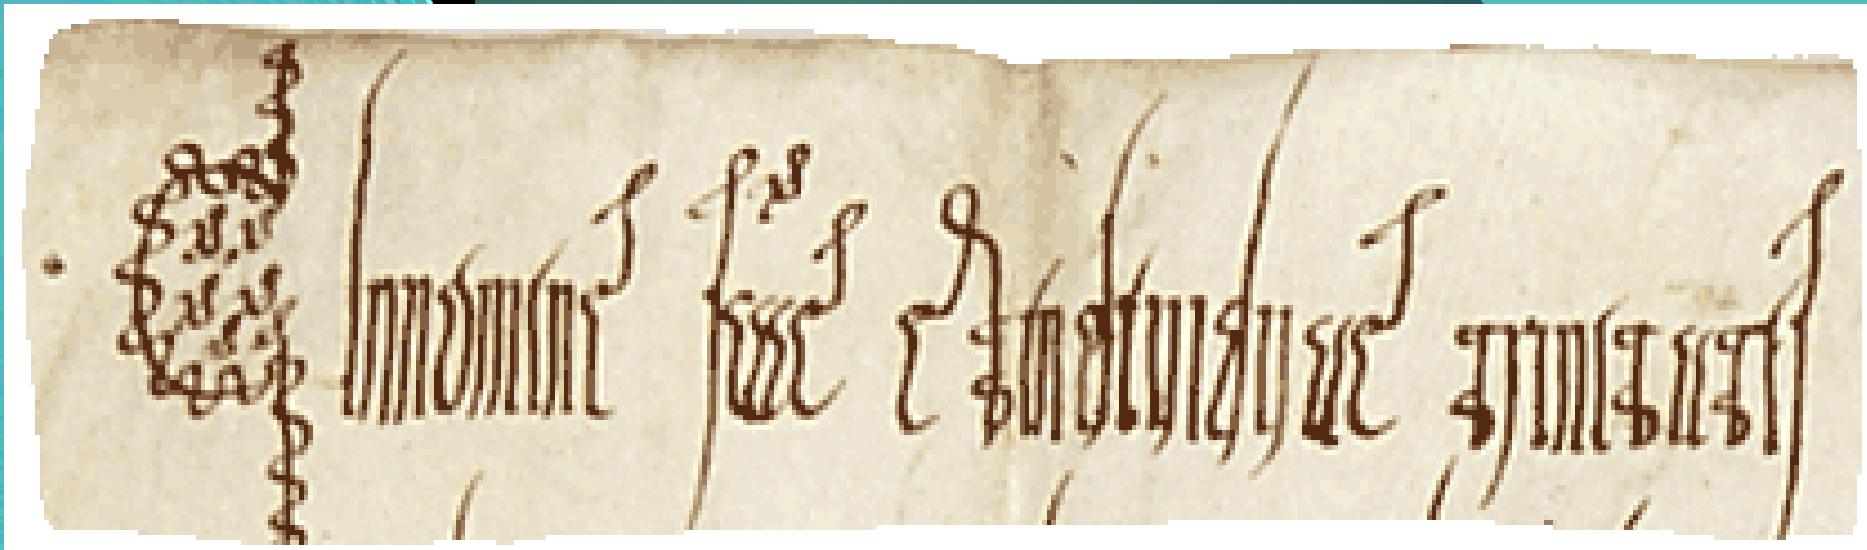 In nomine scae et individuae trinitatis